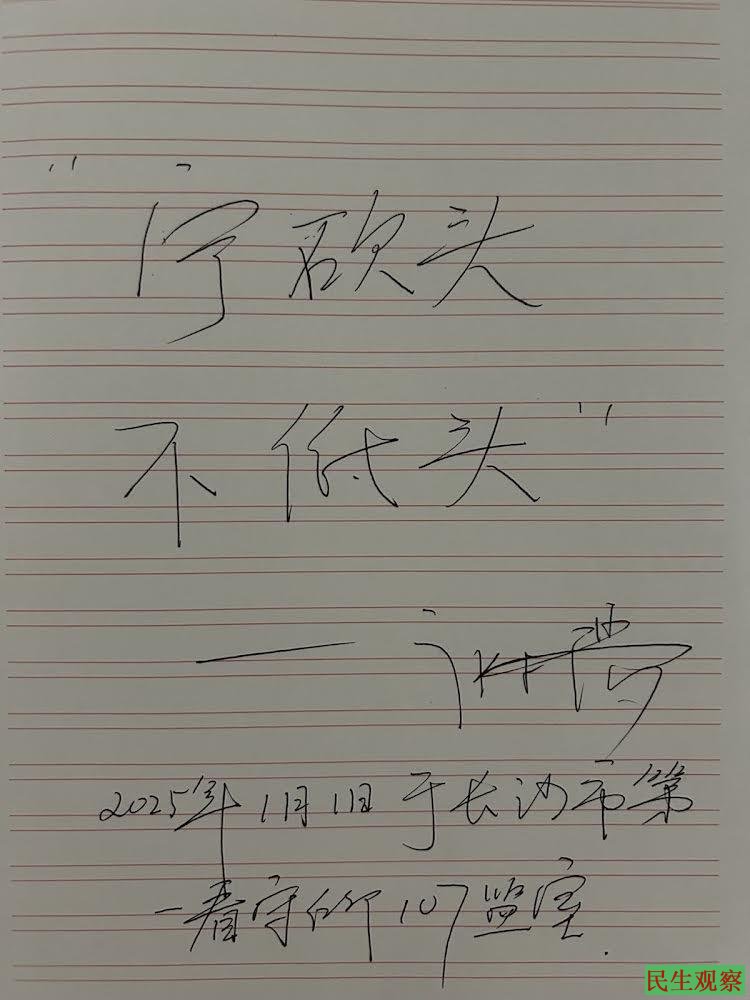 "宁砍头
不低头"
——
2025年1月1日于长沙市第
一看守所107监室.
民生观察